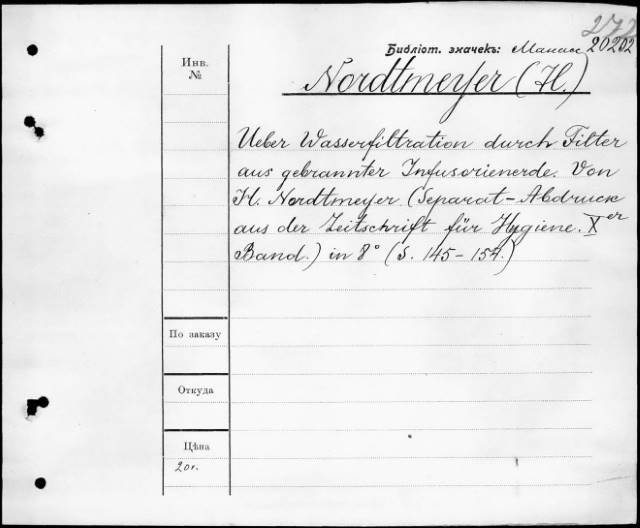 272
Библіот. значекъ: Манас 20202
Инв.
№
Nordtmeyer (H.)
Ueber Wasserfiltration durch Filter
aus gebrannter Infusorienerde. Von
H. Nordtmeyer (Separat-Abdruck
aus der Zeitschrift für Hygiene. X er
Band.) in 8° (S. 145-154.)
По заказу
Откуда
Цѣна
20 г.